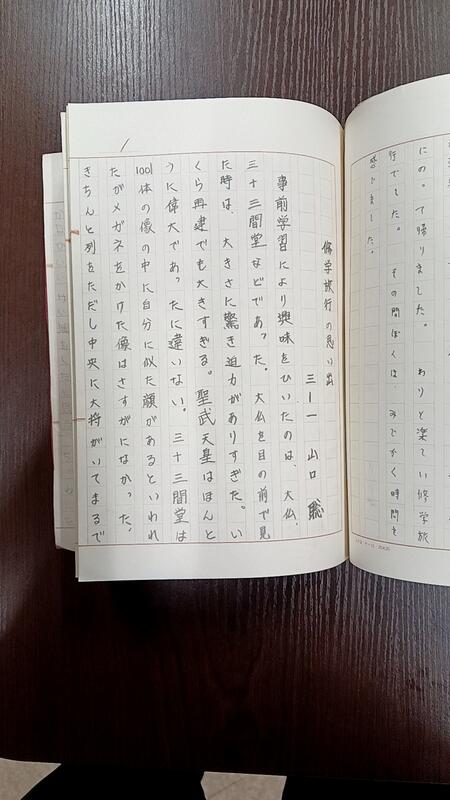 にのって帰りました。 わりと楽しい修学旅
行でした。 その間ぼくは、みじかく時間を
感じました。
修学旅行の思い出
三ー一 山口 聡
事前学習により興味をひいたのは、大仏、
三十三間堂などであった。大仏を目の前で見
た時は、大きさに驚き迫力がありすぎた。い
くら再建でも大きすぎる。聖武天皇はほんと
うに偉大であったに違いない。三十三間堂は
1001体の像の中に自分に似た顔があるといわれ
たがメガネをかけた像はさすがになかった。
きちんと列をただし中央に大将がいてまるで
1